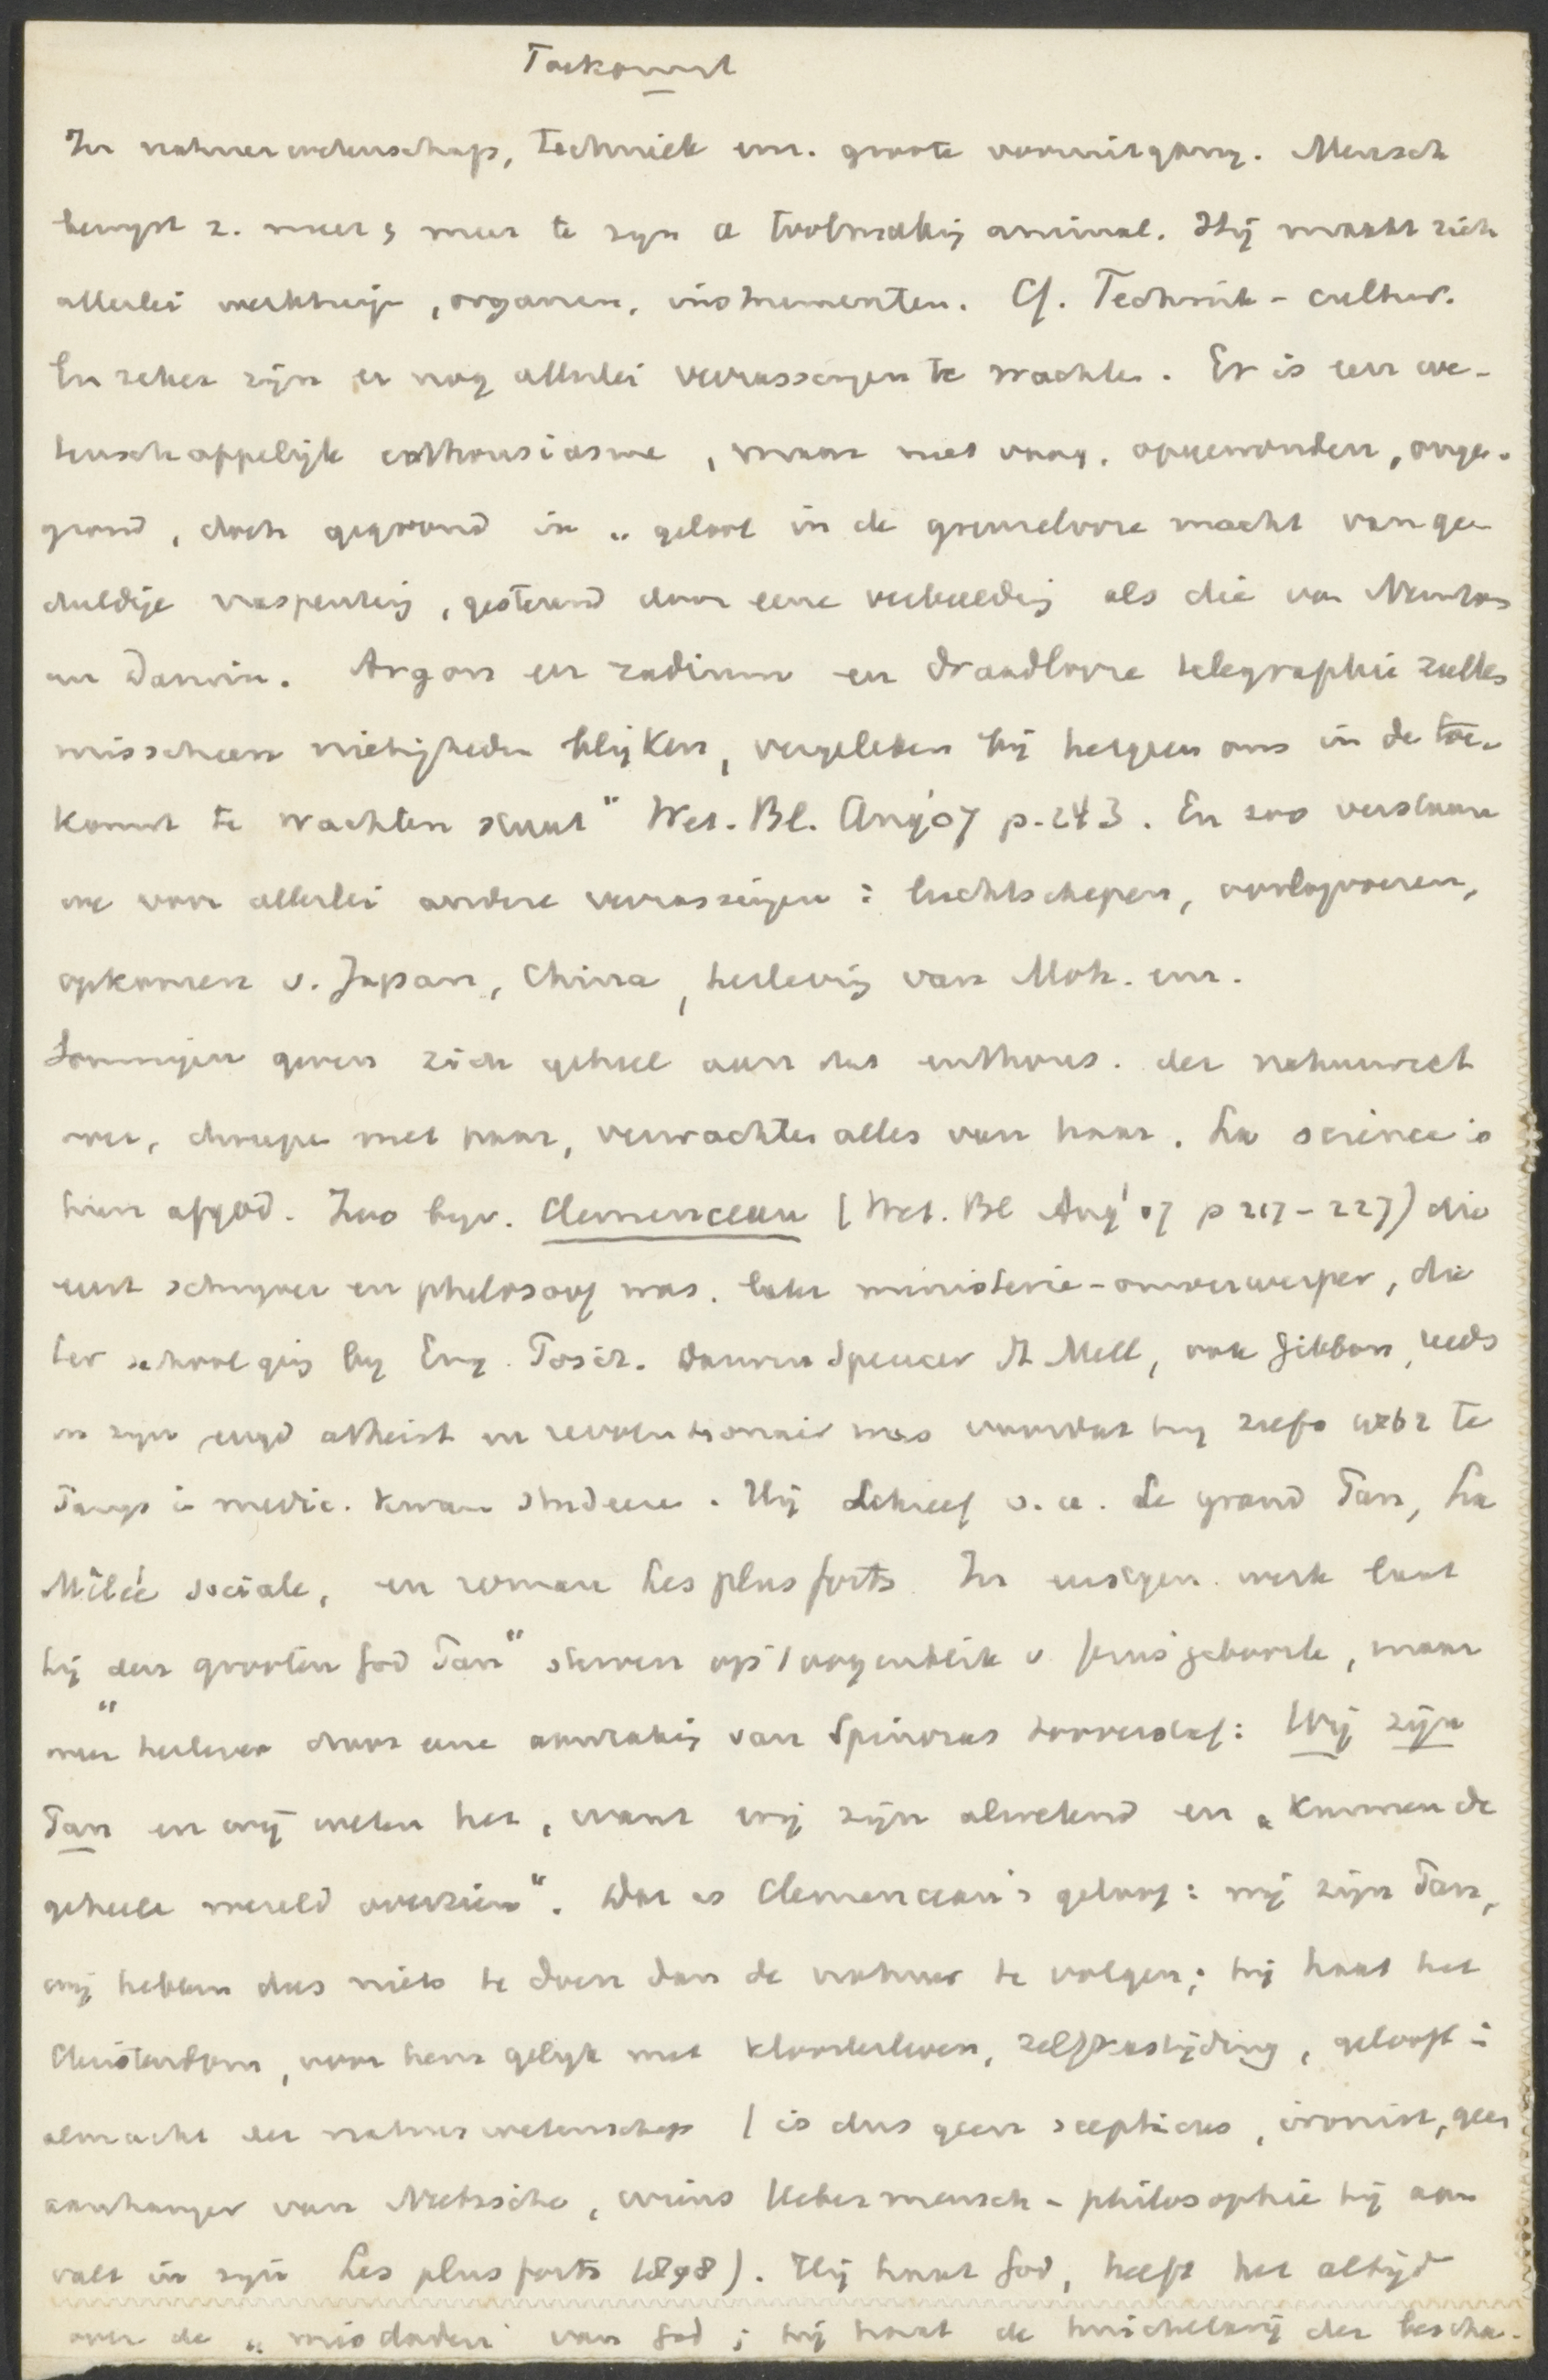 Toekomst
In natuurwetenschap, techniek enz. groote vooruitgang. Mensch
bewijst z. meer & meer te zijn a toolmaking animal. Hij maakt zich
allerlei werktuigen, organen, instrumenten. Cf. Technik-cultur.
En zeker zijn er nog allerlei verrassingen te wachten. Er is een we-
tenschappelijk enthousiasme, maar niet vaag, opgewonden, onge-
grond, doch gegrond in „geloof in de grenzelooze macht van ge-
duldige nasporing, gesteund door eene verbeelding als die van Newton
en Darwin. Argon en radium en draadlooze telegraphie zullen
misschien nietigheden blijken, vergeleken bij hetgeen ons in de toe-
komst te wachten staat" Wet. Bl. Aug '07 p. 243. En zoo verstaan
we van allerlei andere verrassingen: luchtschepen, oorlogvoeren,
opkomen v. Japan, China, herleving van Moh. enz.
Sommigen geven zich geheel aan dat enthous. der natuurwet
over, dweepen met haar, verwachten alles van haar. La science is
hun afgod. Zoo bijv. Clemenceau (Wet. Bl Aug '07 p 217-227) die
eerst schrijver en philosoof was, later ministerie-omverwerper, die
ter school ging bij Eng. Posit. Darwin Spencer St Mill, ook Gibbon, reeds
in zijn jeugd atheist en revolutionair was voordat hij zelfs 1862 te
Parijs in medic. kwam studeeren. Hij schreef o.a. Le grand Pan, La
Mêlée sociale, en roman Les plus forts. In eerstgen. werk laat
hij den grooten God Pan" sterven op 't oogenblik v Jezus' geboorte, maar
weer herleven door eene aanraking van Spinozas tooverstaf: Wij zijn
Pan en wij weten het, want wij zijn alwetend en „kunnen de
geheele wereld overzien". Dat is Clemenceau's geloof: wij zijn Pan,
wij hebben dus niets te doen dan de natuur te volgen; hij haat het
Christendom, voor hem gelijk met kloosterleven, zelfkastijding, gelooft in
almacht der natuurwetenschap (is dus geen scepticus, ironist, geen
aanhanger van Nietzsche, wiens Uebermensch-philosophie hij aan
valt in zijn Les plus forts 1898). Hij haat God, heeft het altijd
over de „misdaden" van God; hij haat de huichelarij der bescha-